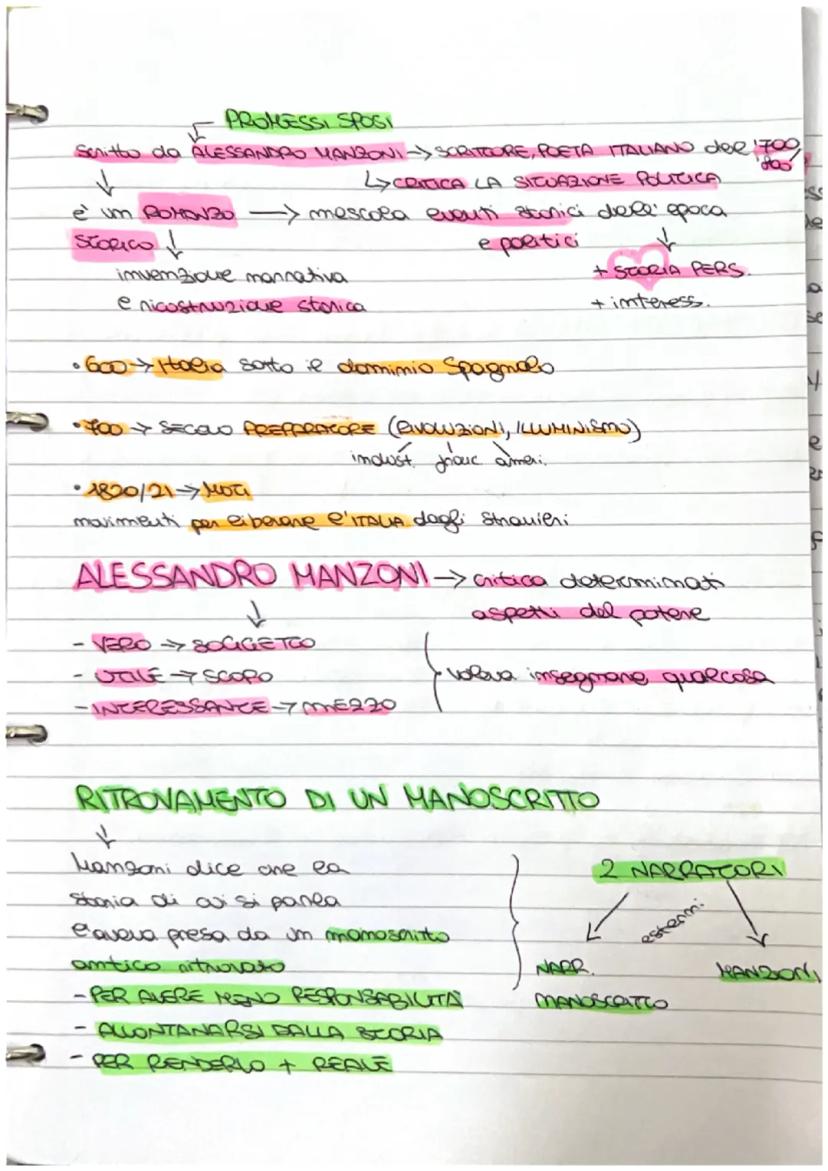 PROMESSI SPOSI
scritto da ALESSANDRO MANZONI → SCRITTORE, POETA ITALIANO del '700/'800
↳ CRITICA LA SITUAZIONE POLITICA
è un ROMANZO → mescola eventi storici dell'epoca
STORICO ↓ e politici
invenzione narrativa + STORIA PERS.
e ricostruzione storica + interess.
• 600 → Italia sotto il dominio Spagnolo
• 700 → SECOLO PREPARATORE (RIVOLUZIONI, ILLUMINISMO)
indust. franc. ameri.
• 1820/21 → MOTI
movimenti per liberare l'ITALIA dagli stranieri
ALESSANDRO MANZONI → critica determinati
aspetti del potere
- VERO → SOGGETTO
- UTILE → SCOPO } voleva insegnare qualcosa
- INTERESSANTE → MEZZO
RITROVAMENTO DI UN MANOSCRITTO
Manzoni dice che la
storia di cui si parla
l'aveva presa da un manoscritto
antico ritrovato
- PER AVERE MENO RESPONSABILITÀ
- ALLONTANARSI DALLA STORIA
- PER RENDERLO + REALE
2 NARRATORI
esterni
NARR. MANZONI
MANOSCRITTO